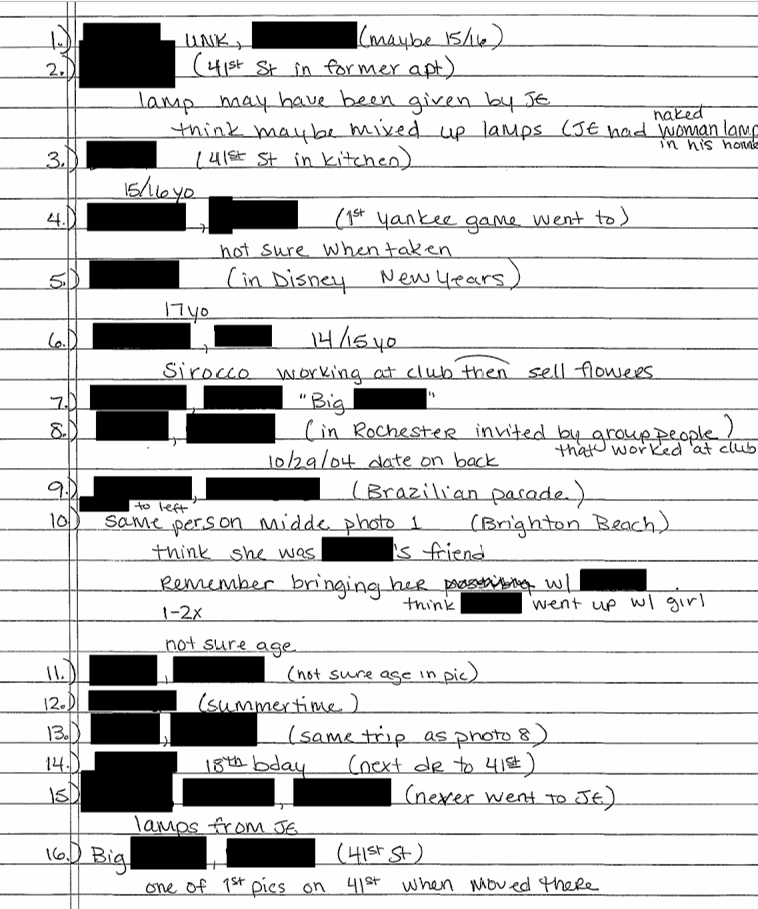 1.) UNK, (maybe 15/16)
2.) (41st St in former apt)
lamp may have been given by JE
think maybe mixed up lamps (JE had naked woman lamp in his home
3.) (41st St in kitchen)
15/16 yo
4.) , (1st yankee game went to)
not sure when taken
5.) (in Disney New Years)
17 yo
6.) , 14/15 yo
Sirocco working at club then sell flowers
7.) , "Big "
8.) , (in Rochester invited by group people)
that worked at club
10/29/04 date on back
9.) , (Brazilian parade)
to left
10) same person midde photo 1 (Brighton Beach)
think she was 's friend
Remember bringing her w/
think went up w/ girl
1-2x
not sure age
11.) , (not sure age in pic)
12.) (summertime)
13.) , (same trip as photo 8)
14.) 18th bday (next dr to 41st)
15) , (never went to JE)
lamps from JE
16.) Big , (41st St)
one of 1st pics on 41st when moved there